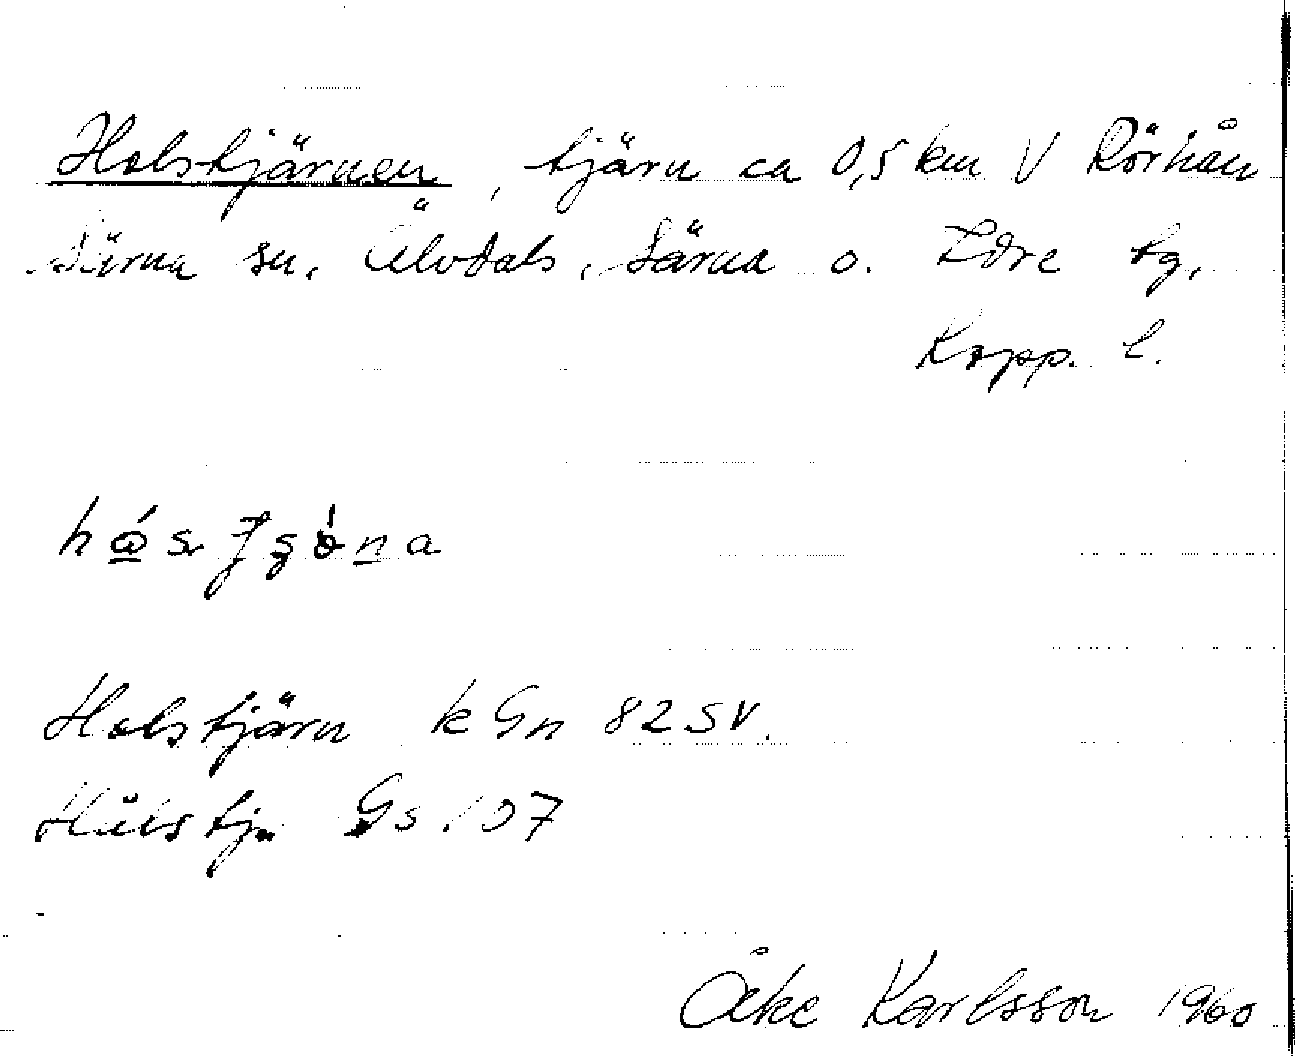 Holstjärnen, tjärn ca 0,5 km V Rörhån
Särna sn, Älvdals, Särna o. Idre tg,
Kopp. l.
Holstjärn k Gn 82 SV.
Hålstj. Gs. 107
Åke Karlsson 1960